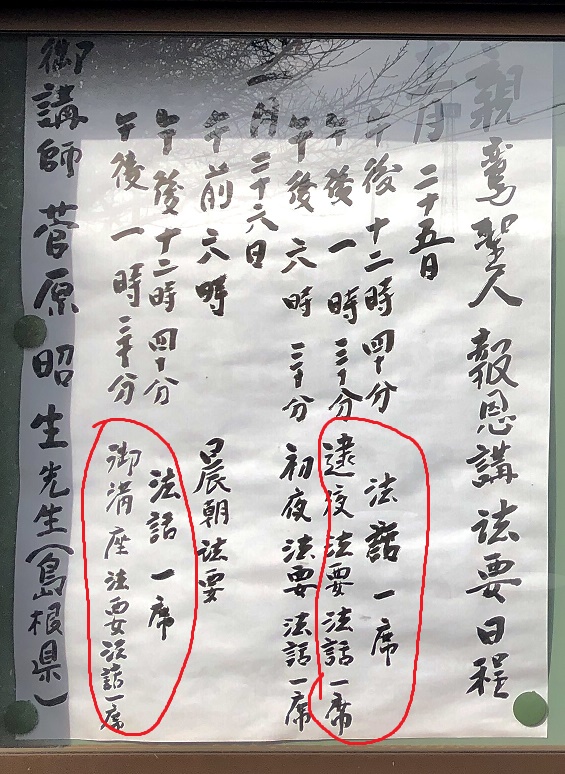 親鸞聖人報恩講法要日程
二月二十五日
午後十二時四十分 法話一席
午後一時三十分 逮夜法要法話一席
午後六時三十分 初夜法要法話一席
二月二十六日
午前六時 晨朝法要
午後十二時四十分 法話一席
午後一時三十分 御満座法要法話一席
御講師 菅原昭生先生(島根県)